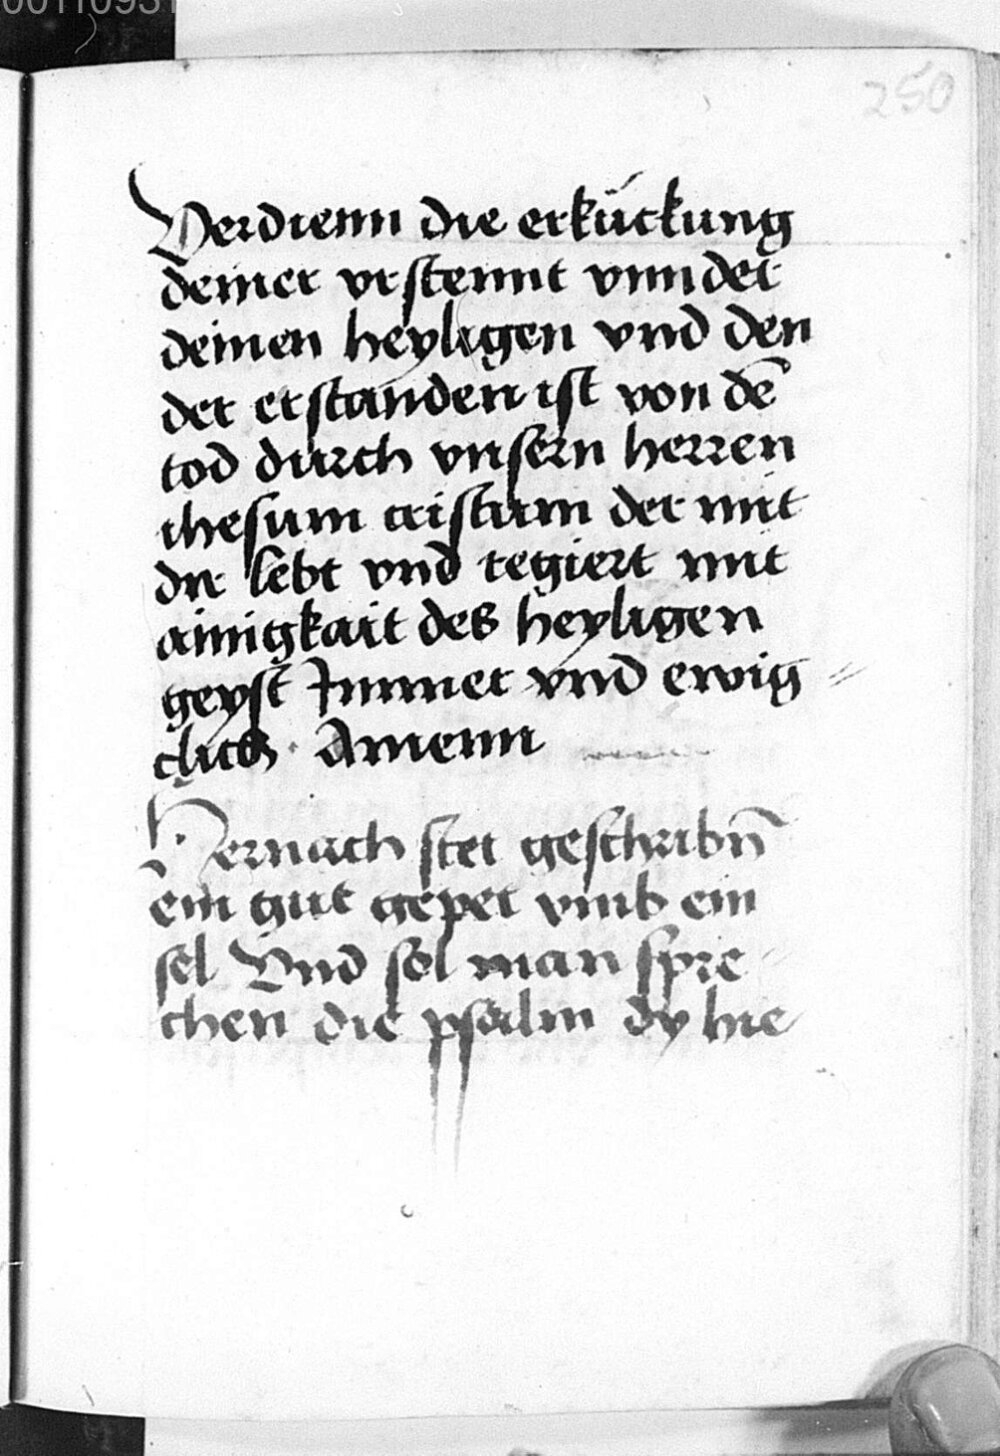 250
Verdienn die erkückung
deiner vrstennt vnnder
deinen heyligen vnd den
der erstanden ist von dē
tod durch vnsern herren
ihesum cristum der mit
dir lebt vnd regiert mit
ainigkait des heyligen
geyst Immer vnd ewig
clich · Amenn
Hernach stet geschribn̄
ein gut gepet vmb ein
sel Vnd sol man spre
chen die psalm dy hie